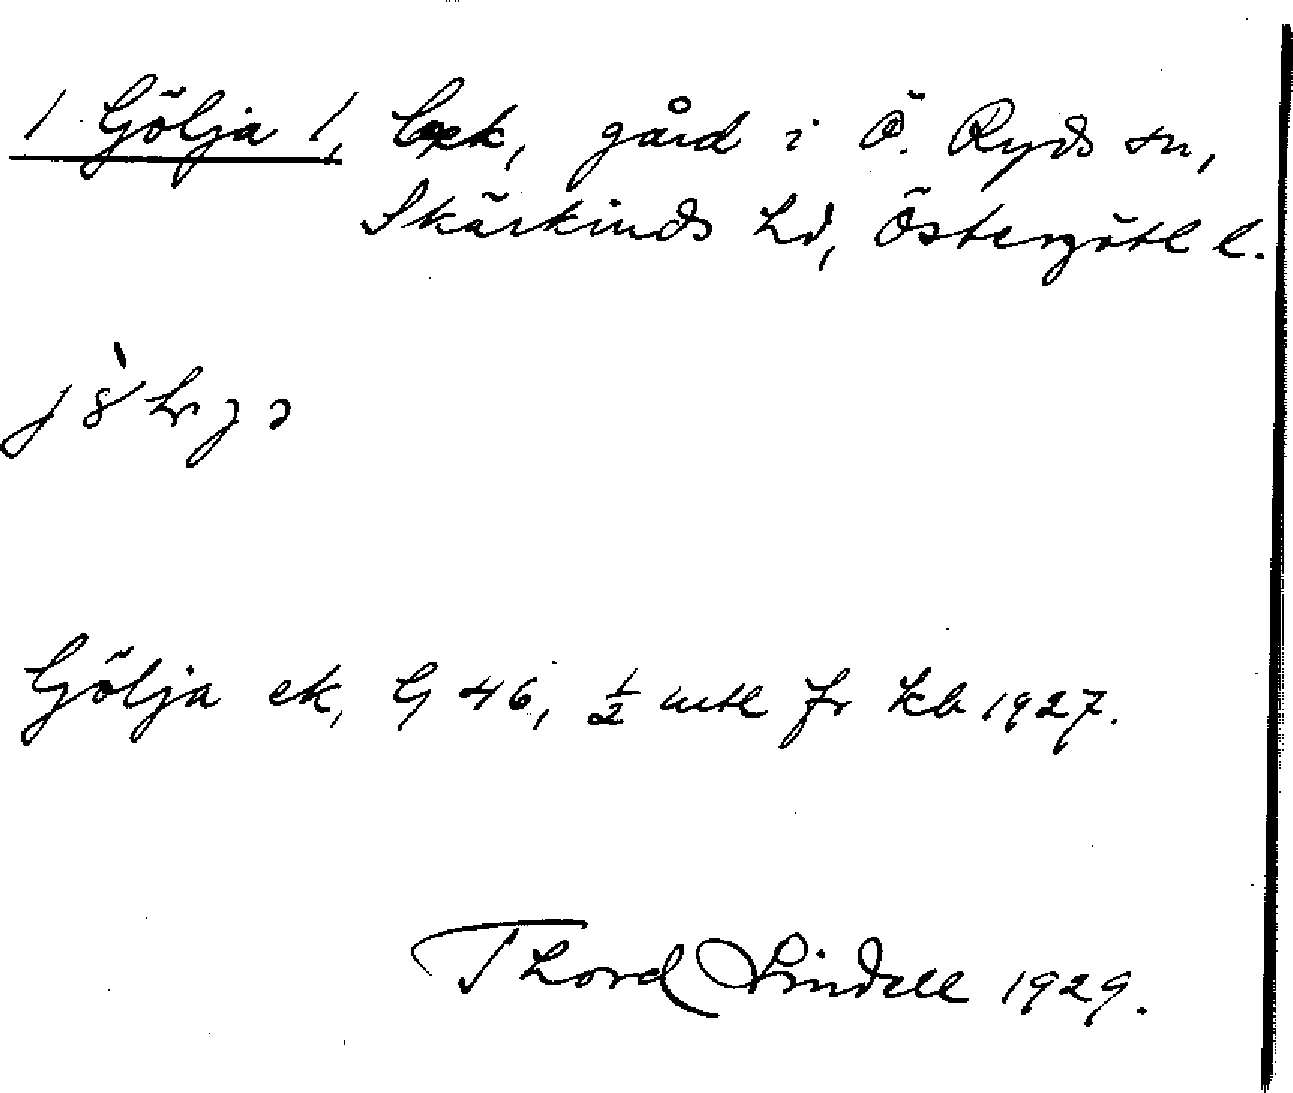 / Gölja /, ek, gård i Ö. Ryds sn,
Skärkinds hd, Östergötl l.
Gölja ek, G 46, 1/2 mtl fr kb 1927.
Thord Lindell 1929.